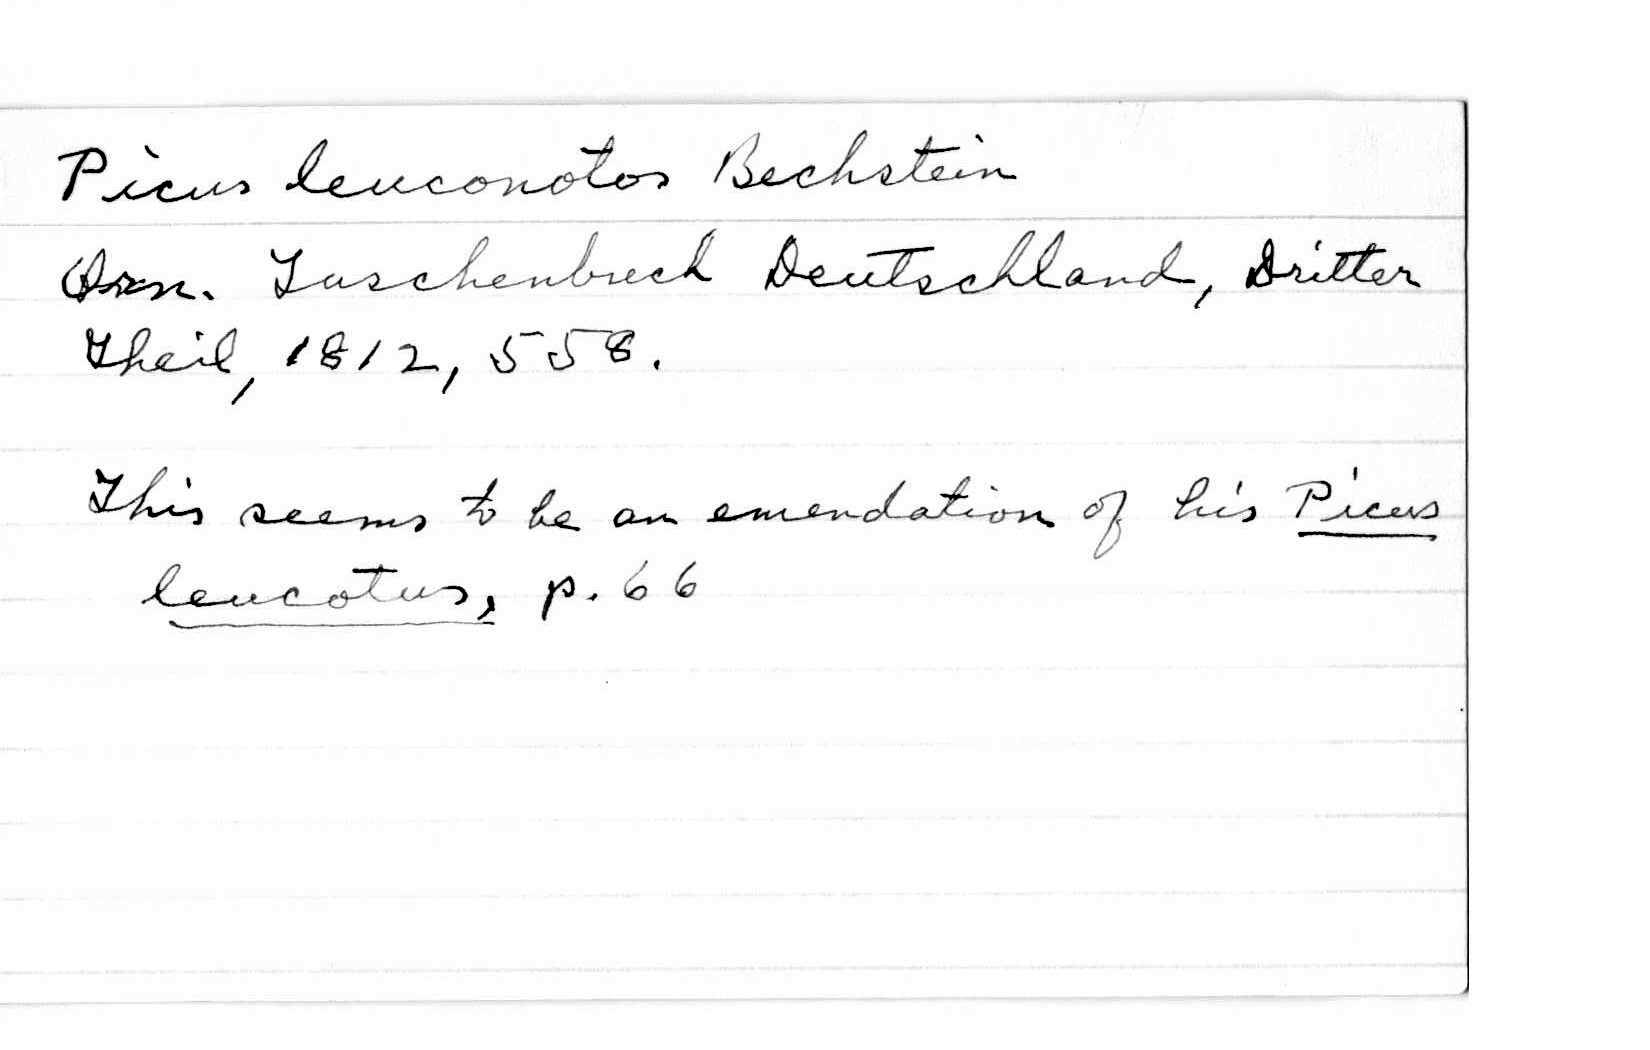 Picus leuconotos Bechstein
Orn. Taschenbuch Deutschland, Dritter
Theil, 1812, 558.
This seems to be an emendation of his Picus
leucotus, p. 66